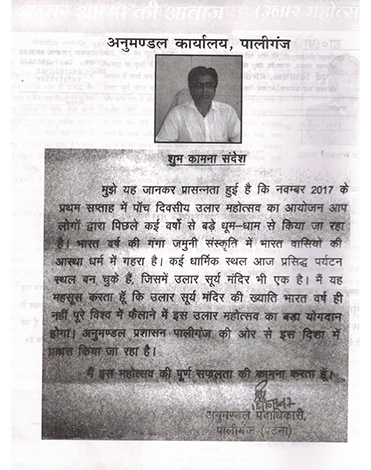 अन्तर आत्मा की आवाज (उलार महोत्स
अनुमण्डल कार्यालय, पालीगंज
शुभ कामना संदेश
मुझे यह जानकर प्रासन्नता हुई है कि नवम्बर 2017 के
प्रथम सप्ताह में पाँच दिवसीय उलार महोत्सव का आयोजन आप
लोगों द्वारा पिछले कई वर्षो से बड़े धूम-धाम से किया जा रहा
है। भारत वर्ष की गंगा जमुनी संस्कृति में भारत वासियों की
आस्था धर्म में गहरा है। कई धार्मिक स्थल आज प्रसिद्ध पर्यटन
स्थल बन चुके हैं, जिसमें उलार सूर्य मंदिर भी एक है। मैं यह
महसूस करता हूँ कि उलार सूर्य मंदिर की ख्याति भारत वर्ष ही
नहीं पूरे विश्व में फैलाने में इस उलार महोत्सव का बडा योगदान
होगा। अनुमण्डल प्रशासन पालीगंज की ओर से इस दिशा में
प्रयास किया जा रहा है।
मैं इस महोत्सव की पूर्ण सफलता की कामना करता हूँ।
अनुमण्डल पदाधिकारी,
पालीगंज (पटना)